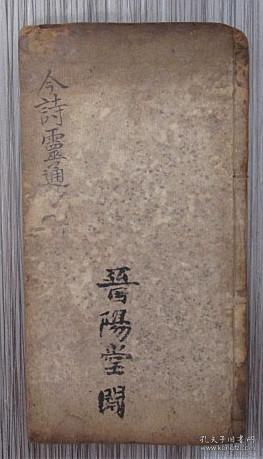 今詩靈通
晉陽堂閱
孔夫子旧书网